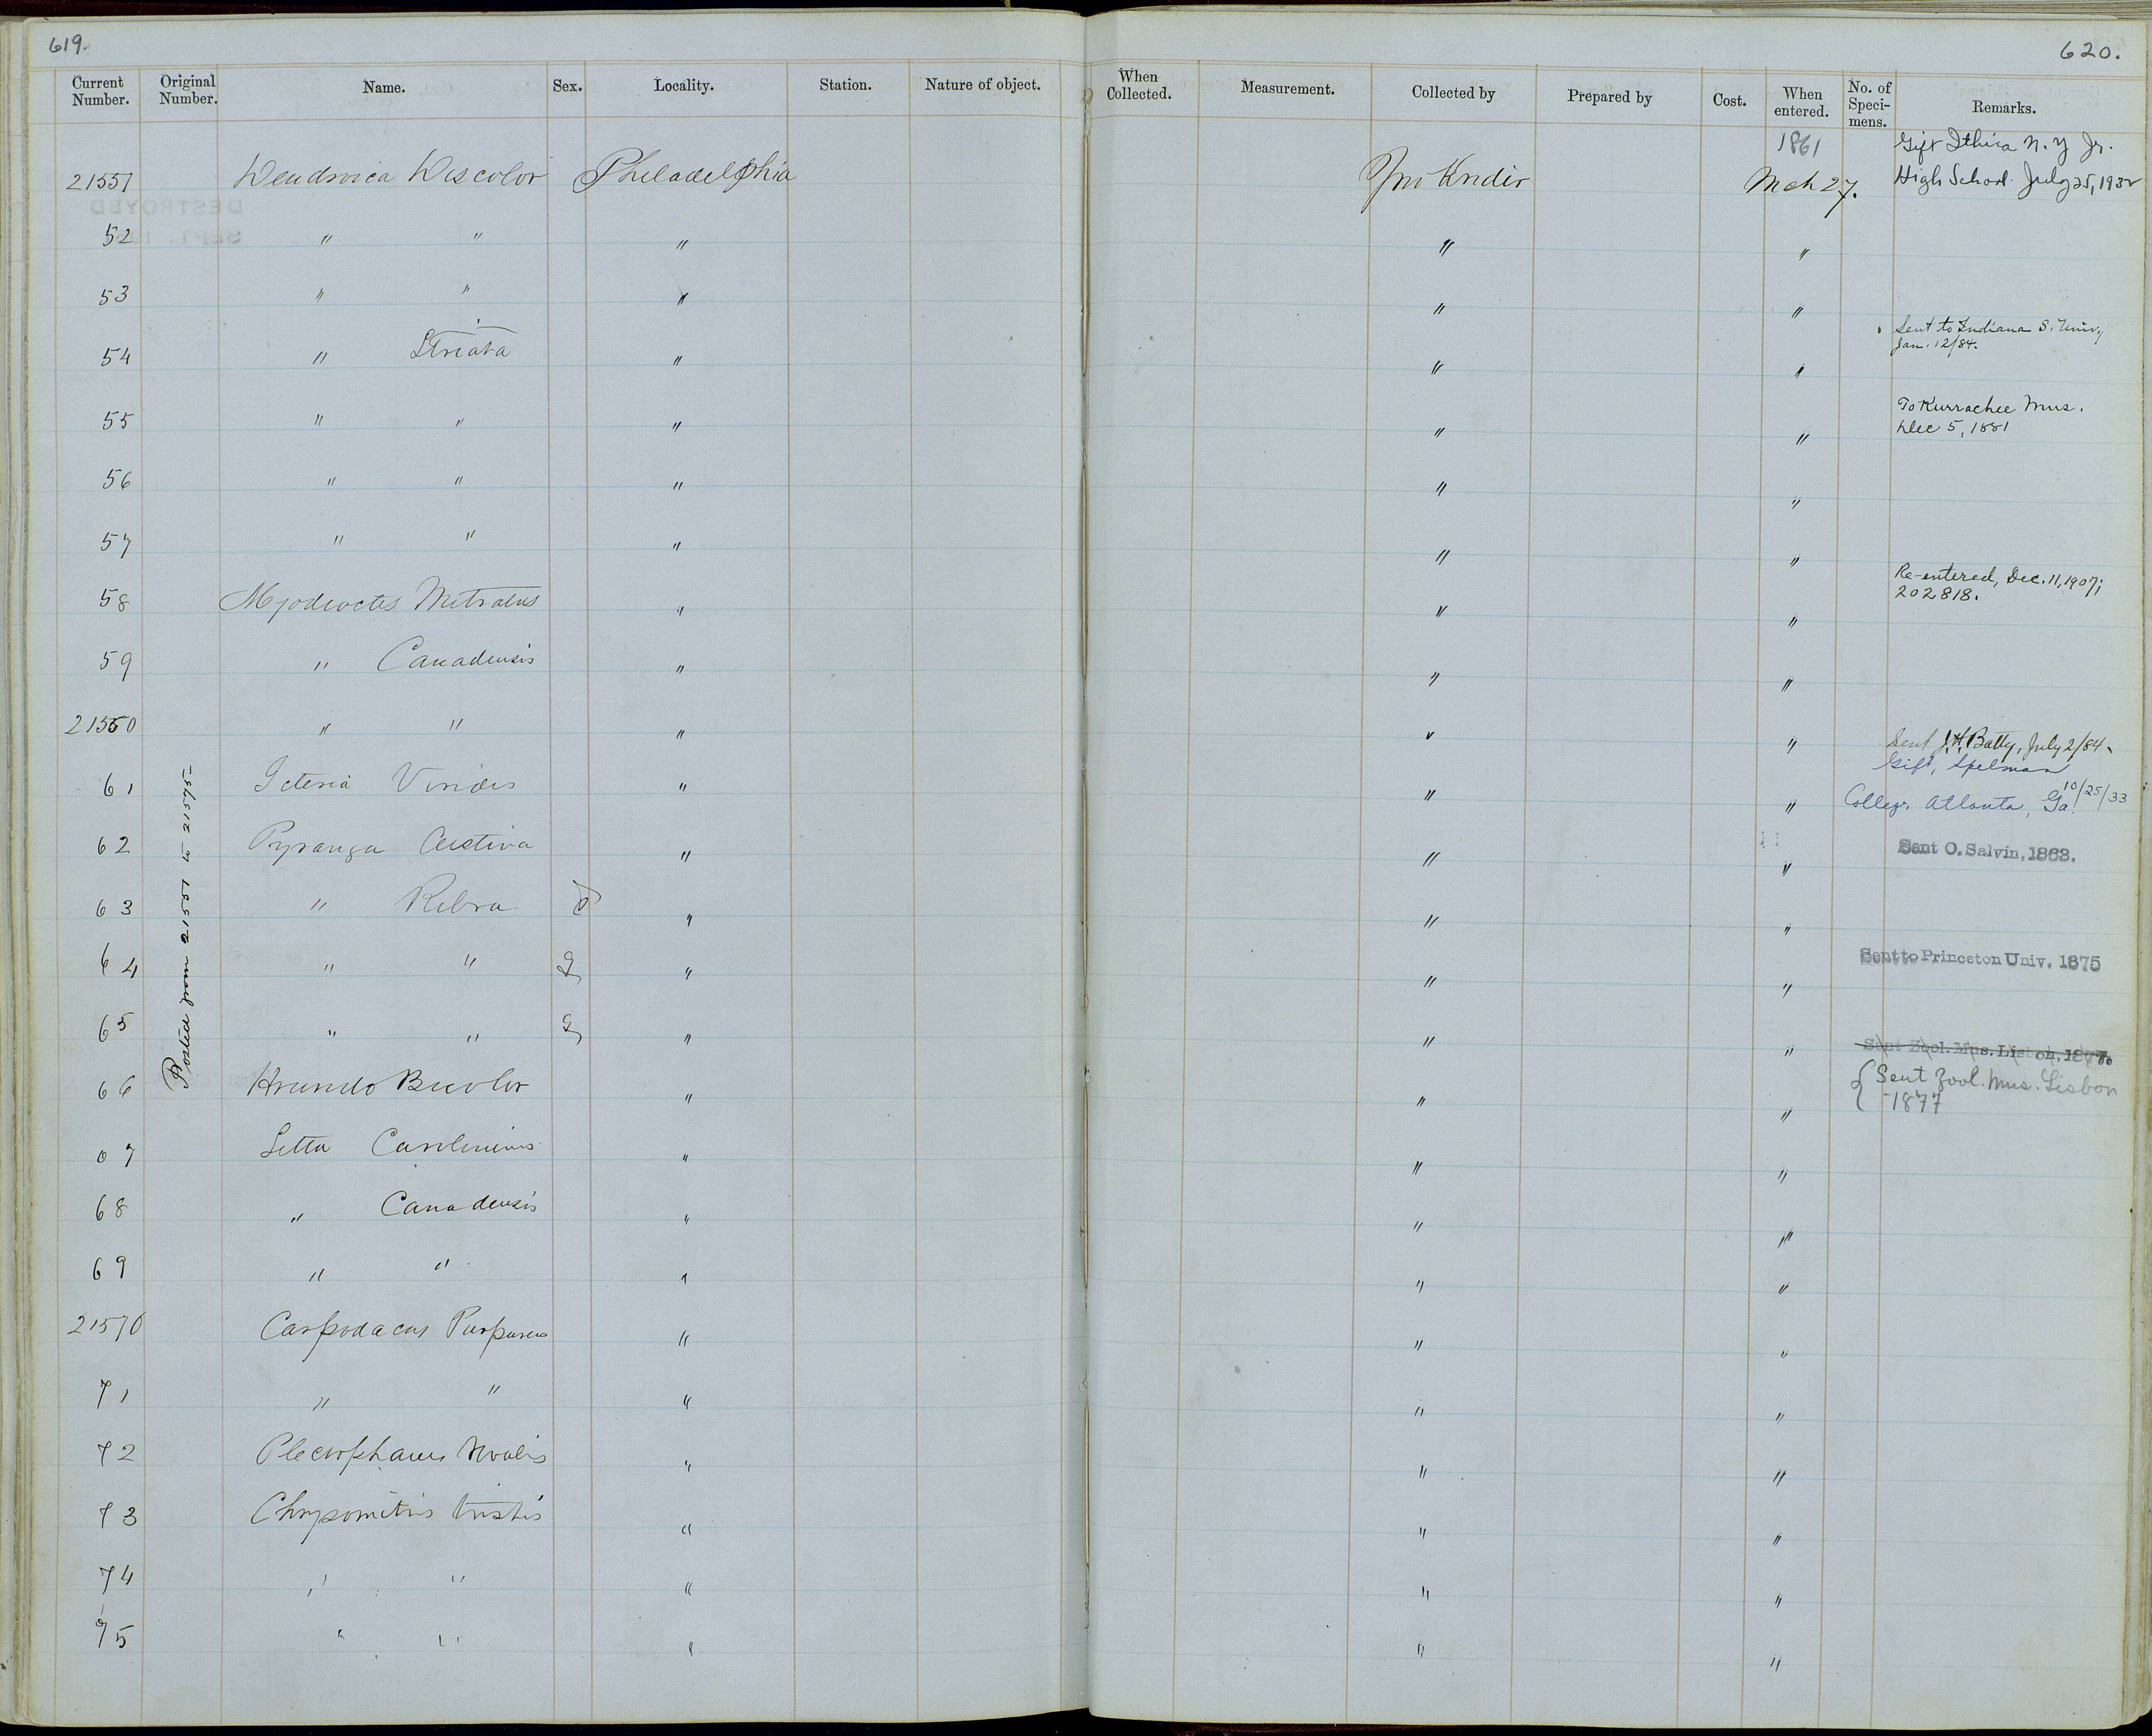 619.
620.
Current Number. Original Number. Name. Sex. Locality. Station. Nature of object. When Collected. Measurement. Collected by Prepared by Cost. When entered. No. of Specimens. Remarks.
1861 Gift Ithica N.Y Jr.
21551 Dendroica Discolor Philadelphia Jno Krider Mch 27. High School. July 25, 1932
52 " " " " "
53 " " " " "
54 " Striata " " " Sent to Indiana S. Univ,
Jan. 12/84.
55 " " " " " To Kurrachee Mus.
Dec 5, 1881
56 " " " " "
57 " " " " "
58 Myodioctes Mitratus " " " Re-entered, Dec. 11, 1907;
202818.
59 " Canadensis " " "
21560 " " " " " Sent J.H. Batty, July 2/84.
Gift, Spelman
61 Icteria Viridis " " " College, Atlanta, Ga. 10/25/33
62 Pyranga Aestiva " " " Sent O. Salvin, 1868.
63 " Rubra ♂ " " "
64 " " ♀ " " " Sent to Princeton Univ. 1875
65 " " ♀ " " " Sent Zool. Mus. Lisbon, 1877.
66 Hirundo Bicolor " " " { Sent Zool. Mus. Lisbon
1877
67 Sitta Carolinensis " " "
68 " Canadensis " " "
69 " " " " "
21570 Carpodacus Purpureus " " "
71 " " " " "
72 Plectrophanes Nivalis " " "
73 Chrysomitris tristis " " "
74 " " " " "
75 " " " " "
Posted from 21551 to 21575